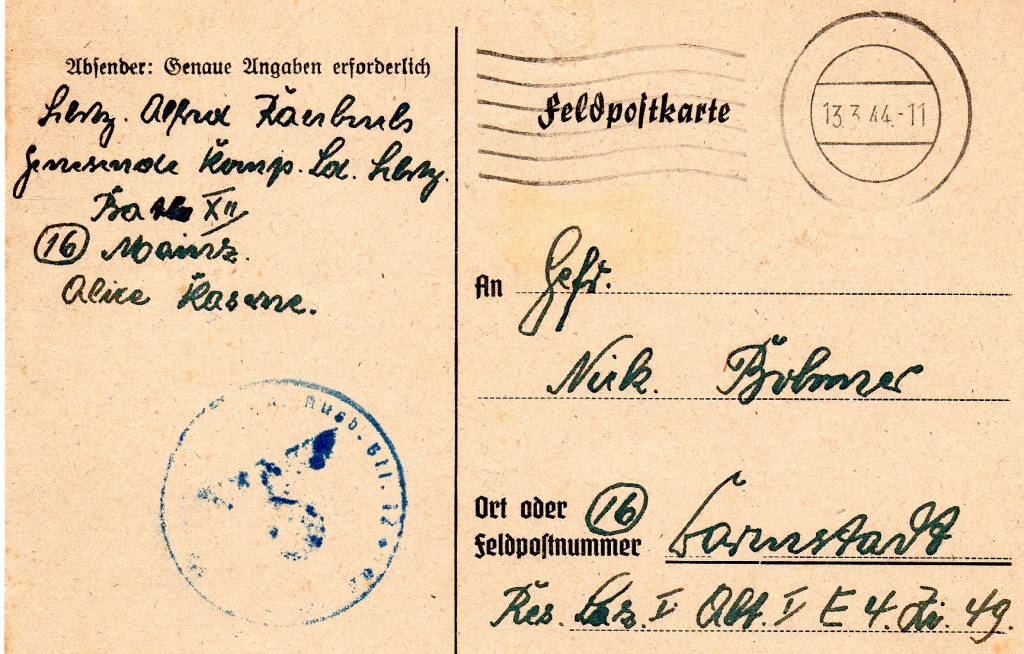 Absender: Genaue Angaben erforderlich
Alfred
Genesende Komp. Ld. Schtz.
Batl. XII
(16) Mainz.
Alice Kaserne.
Ausb. Btl. 12
Feldpostkarte
13.3.44.-11
An Gefr.
Nick.
Ort oder (16) Darmstadt
Feldpostnummer
Res. Laz. I Abt. I E 4. Zi. 49.